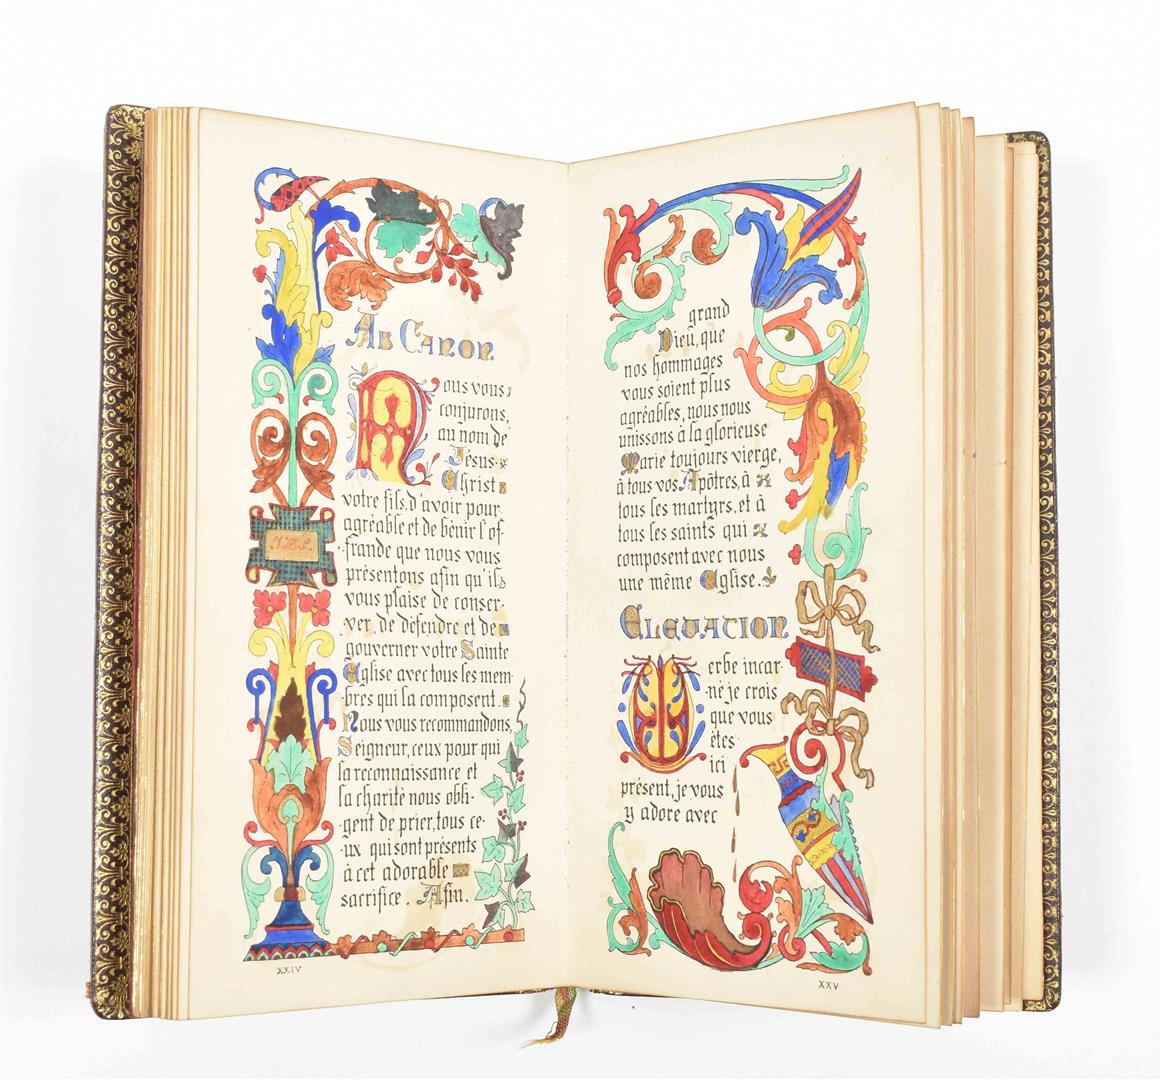 Au Canon
Nous vous
conjurons,
au nom de
Jésus-
Christ
votre fils, d'avoir pour
agréable et de bénir l'of-
frande que nous vous
présentons afin qu'il
vous plaise de conser-
ver de défendre et de
gouverner votre Sainte
Eglise avec tous les mem-
bres qui la composent.
Nous vous recommandons
Seigneur, ceux pour qui
la reconnaissance et
la charité nous obli-
gent de prier, tous ce-
ux qui sont présents
à cet adorable
sacrifice. Afin.
XXIV
grand
Dieu, que
nos hommages
vous soient plus
agréables, nous nous
unissons à la glorieuse
Marie toujours vierge,
à tous vos Apôtres, à
tous les martyrs, et à
tous les saints qui
composent avec nous
une même Eglise.
Elevation
Verbe incar-
né je crois
que vous
êtes
ici
présent, je vous
y adore avec
XXV